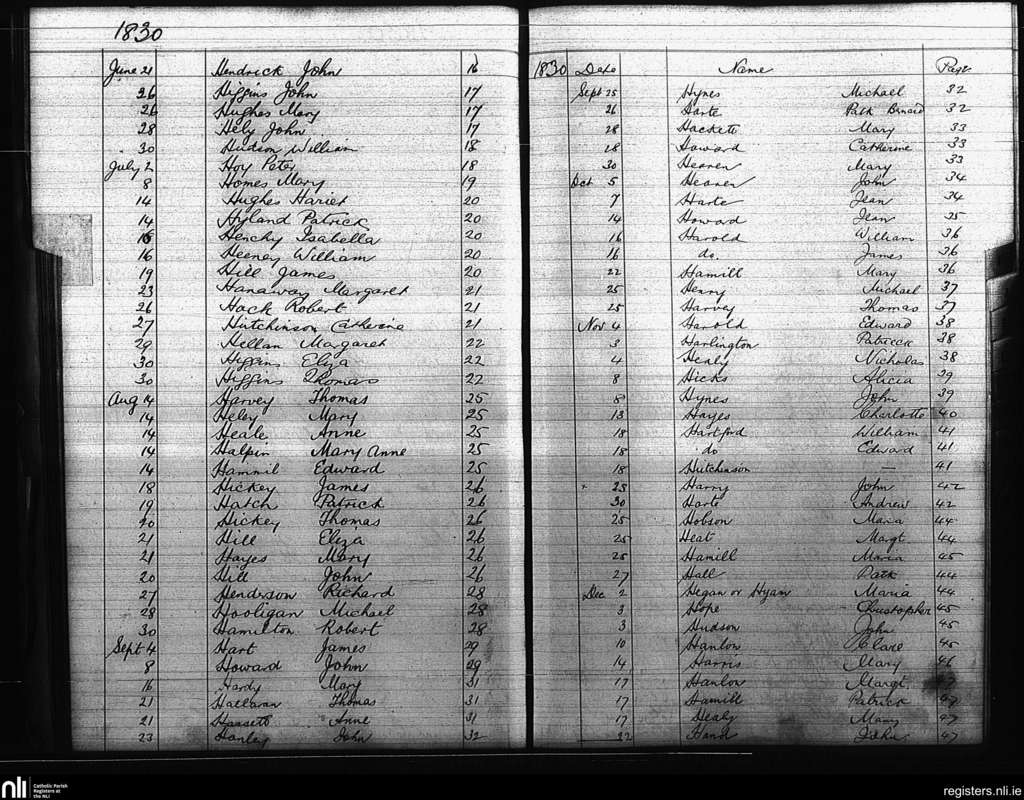 1830
June 21 Hendrick John 16
26 Higgins John 17
26 Hughes Mary 17
28 Hely John 17
30 Hudson William 18
July 2 Hoy Peter 18
8 Homes Mary 19
14 Hughes Hariet 20
14 Hyland Patrick 20
16 Henchy Isabella 20
16 Heeney William 20
19 Hill James 20
23 Hanaway Margaret 21
26 Hack Robert 21
27 Hutchinson Catherine 21
29 Hellan Margaret 22
30 Higgins Eliza 22
30 Higgins Thomas 22
Aug 14 Harvey Thomas 25
14 Heley Mary 25
14 Heale Anne 25
14 Halpin Mary Anne 25
14 Hammil Edward 25
18 Hickey James 26
19 Hatch Patrick 26
20 Hickey Thomas 26
21 Hill Eliza 26
21 Hayes Mary 26
20 Hill John 26
27 Henderson Richard 28
28 Hooligan Michael 28
30 Hamilton Robert 28
Sept 4 Hart James 29
8 Howard John 29
16 Hardy Mary 31
21 Halloran Thomas 31
21 Anne 31
23 Hanley John 32
1830 Date Name Page
Sept 25 Hynes Michael 32
26 Harte Patk Bernard 32
28 Hackett Mary 33
28 Howard Catherine 33
30 Heaven Mary 33
Oct 5 Heaven John 34
7 Harte Jean 34
14 Howard Jean 35
16 Harold William 36
16 do. James 36
22 Hamill Mary 36
25 Henry Michael 37
25 Harvey Thomas 37
Nov 4 Harold Edward 38
3 Harlington Patrick 38
4 Healy Nicholas 38
8 Hicks Alicia 39
8 Hynes John 39
13 Hayes Charlotte 40
18 Hartford William 41
18 do Edward 41
18 Hutchinson — 41
23 Harry John 42
30 Harte Andrew 42
25 Hobson Maria 44
25 Heat Margt 44
25 Hamill Maria 45
27 Hall Patk 44
Dec 2 Hegan or Hyan Maria 44
3 Hope Christopher 45
3 Hudson John 45
10 Hanlon Clare 45
14 Harris Mary 46
17 Hanlon Margt.
17 Hamill Patrick 47
17 Healy Mary 47
22 Hand John 47
nli Catholic Parish
Registers at
the NLI
registers.nli.ie